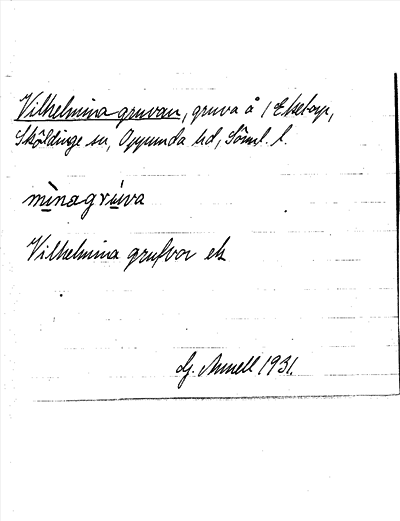 Vilhelmina gruvan, gruva å 1 Ekstorp,
Sköldinge sn, Oppunda hd, Söml. l.
mìnagrùva
Vilhelmina grufvor ek
G. Annell 1931.